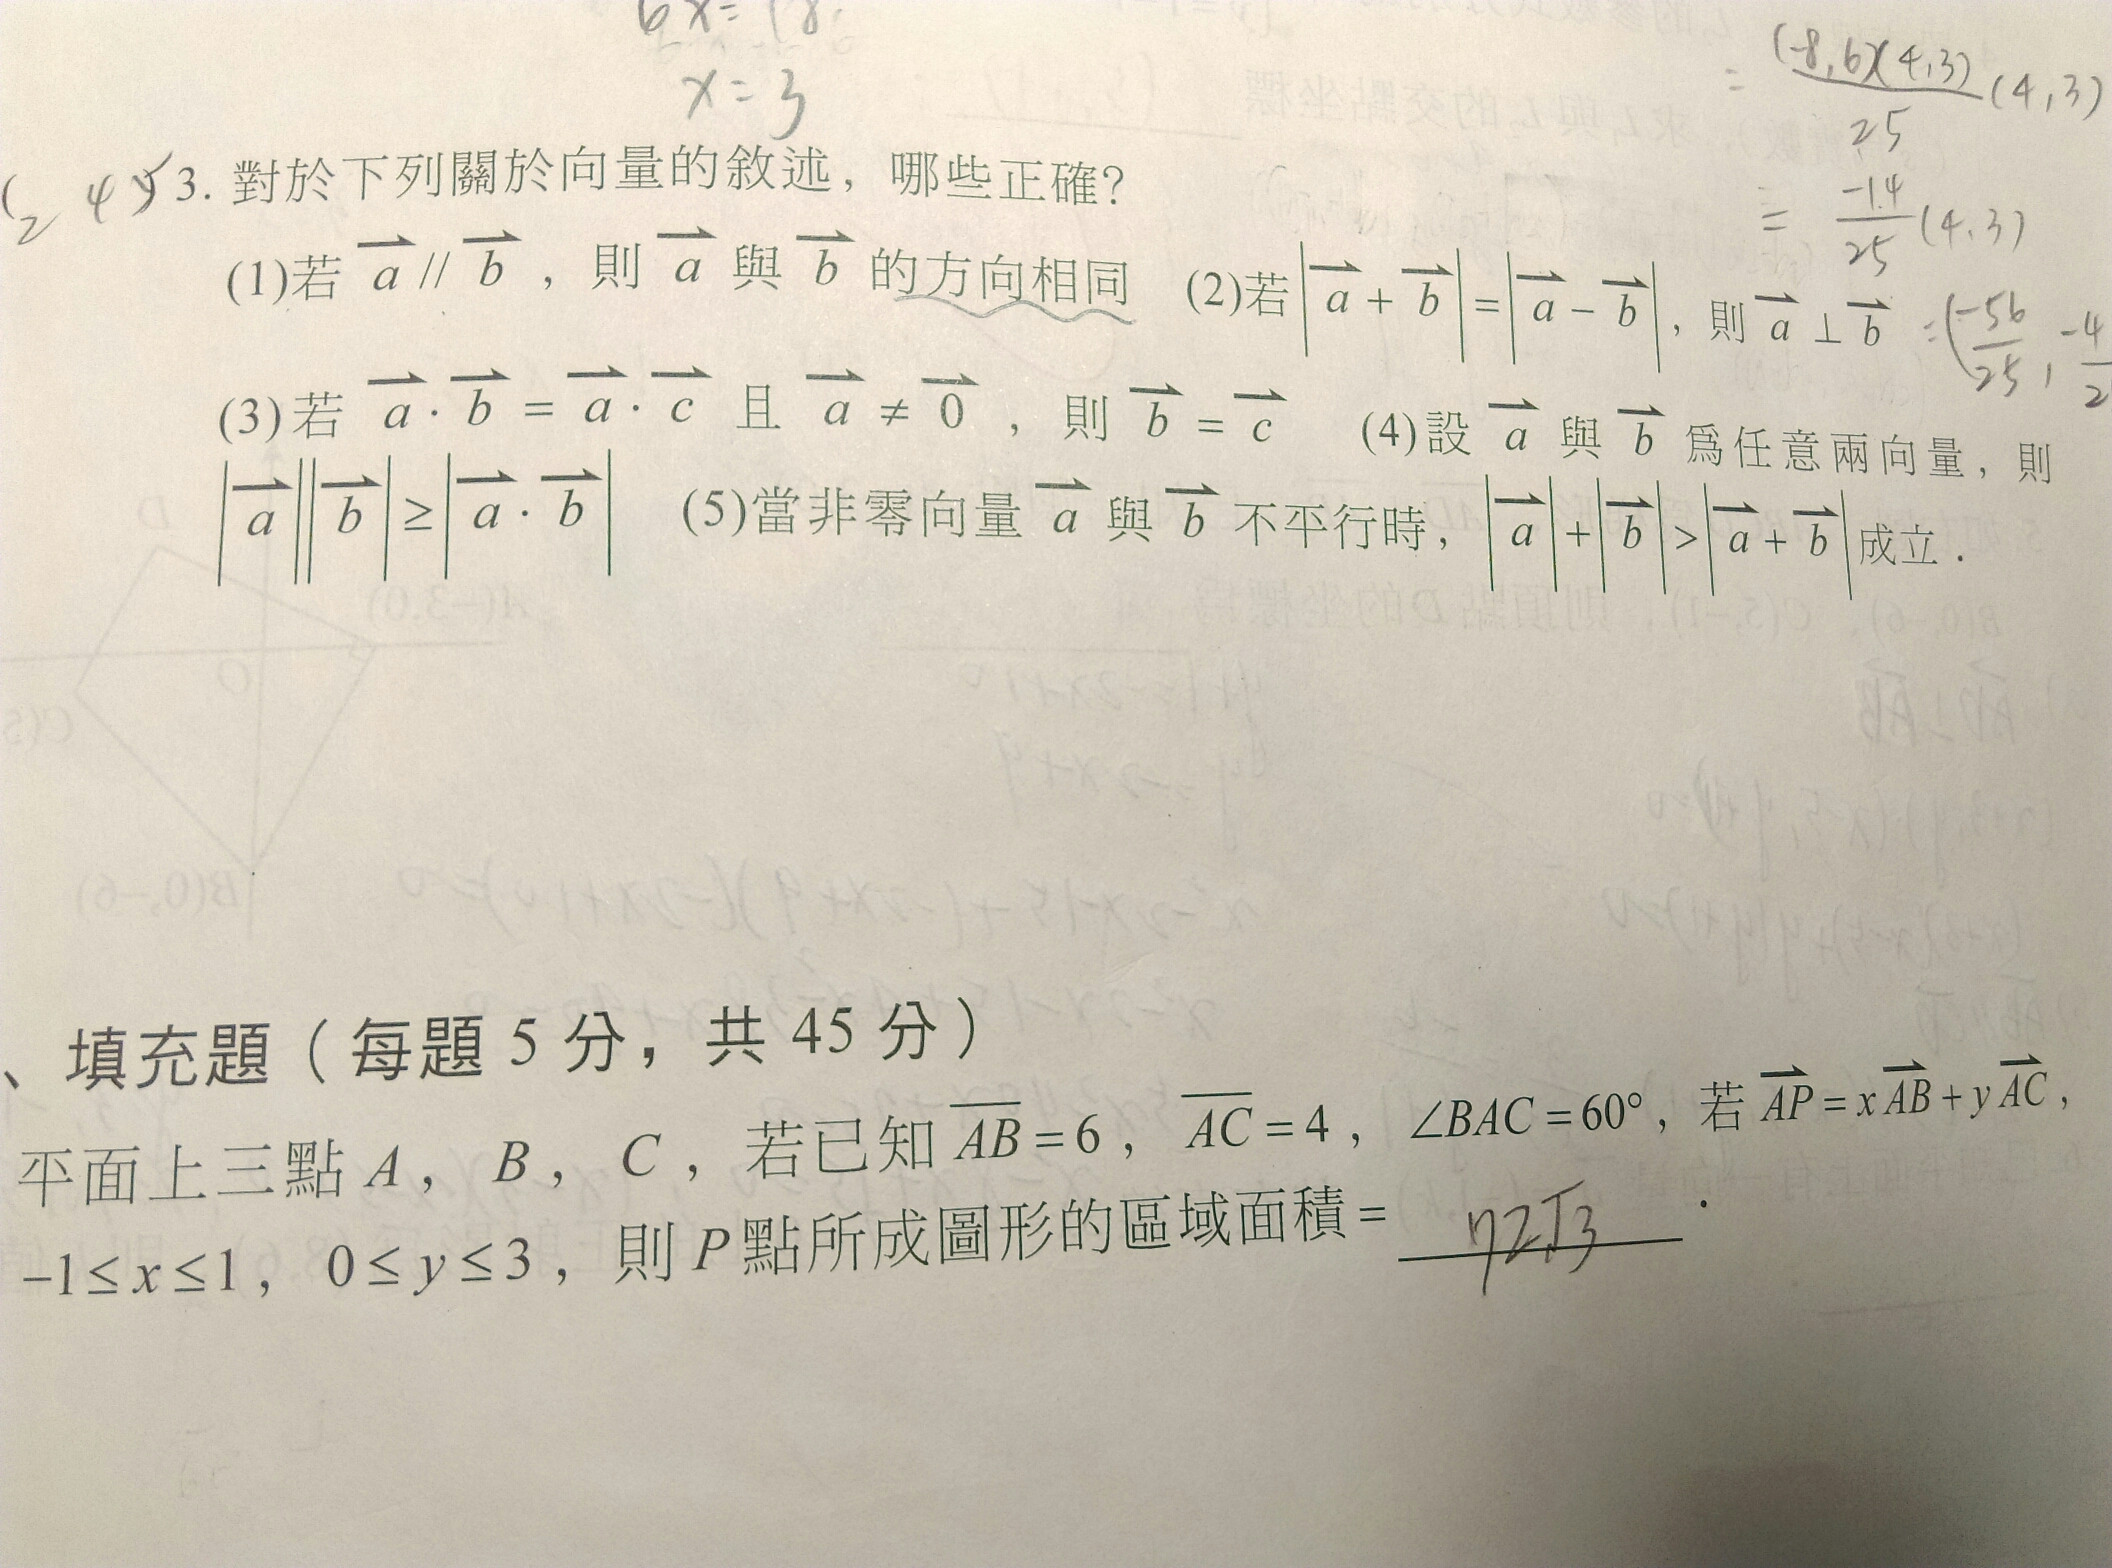 6x=18
x=3
(-8,6)(4,3)
= ——— (4,3)
25
= -14/25 (4,3)
=(-56/25, -4
( 2 4 5 ) 3. 對於下列關於向量的敘述，哪些正確？
(1)若 a⃗ // b⃗ ，則 a⃗ 與 b⃗ 的方向相同 (2)若|a⃗ + b⃗|=|a⃗ − b⃗|，則 a⃗ ⊥ b⃗
(3)若 a⃗ · b⃗ = a⃗ · c⃗ 且 a⃗ ≠ 0⃗ ，則 b⃗ = c⃗ (4)設 a⃗ 與 b⃗ 為任意兩向量，則
|a⃗||b⃗| ≥ |a⃗ · b⃗| (5)當非零向量 a⃗ 與 b⃗ 不平行時，|a⃗|+|b⃗|>|a⃗ + b⃗|成立．
、填充題（每題 5 分，共 45 分）
平面上三點 A，B，C，若已知 A̅B̅=6，A̅C̅=4，∠BAC=60°，若 AP⃗ = xAB⃗ + yAC⃗，
−1≤x≤1，0≤y≤3，則 P 點所成圖形的區域面積= 72√3 ．